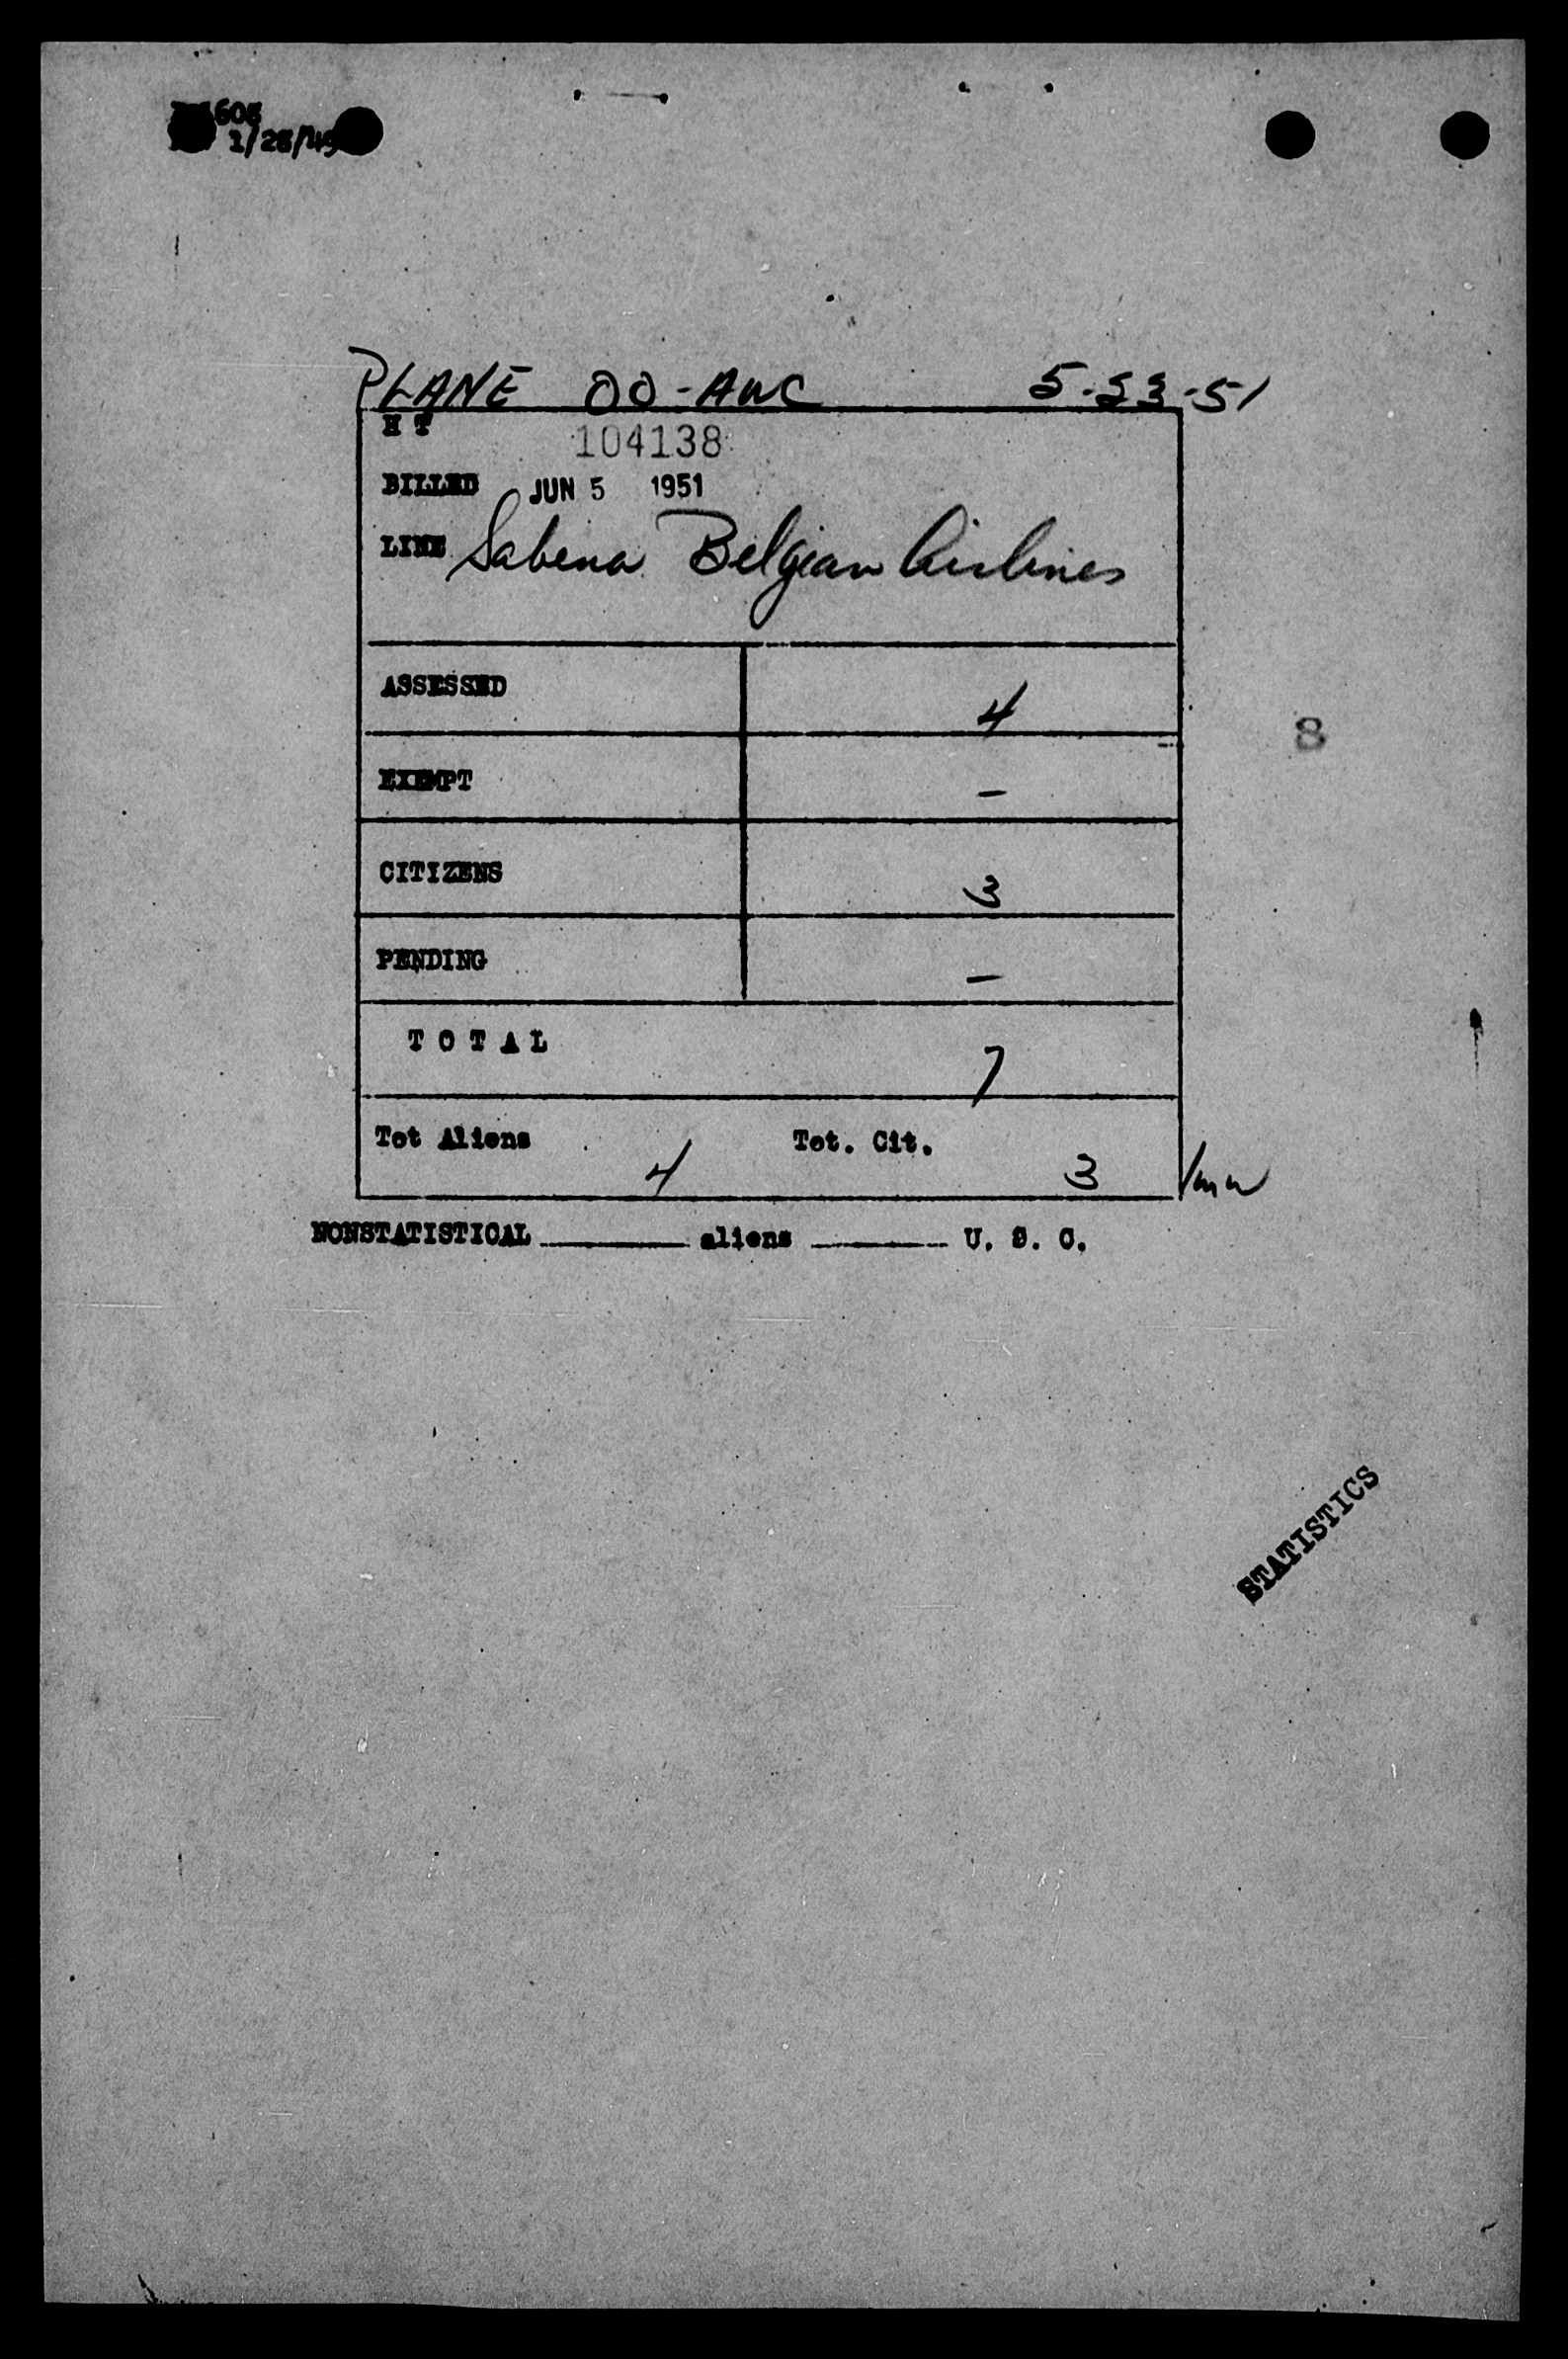 608
1/28/49
PLANE OO-AWC 5-23-51
H T 104138
BILLED JUN 5 1951
LINE Sabena Belgian Airlines
ASSESSED 4
8
EXEMPT –
CITIZENS 3
PENDING –
TOTAL 7
Tot Aliens 4 Tot. Cit. 3
NONSTATISTICAL ______ aliens ______ U. S. C.
STATISTICS